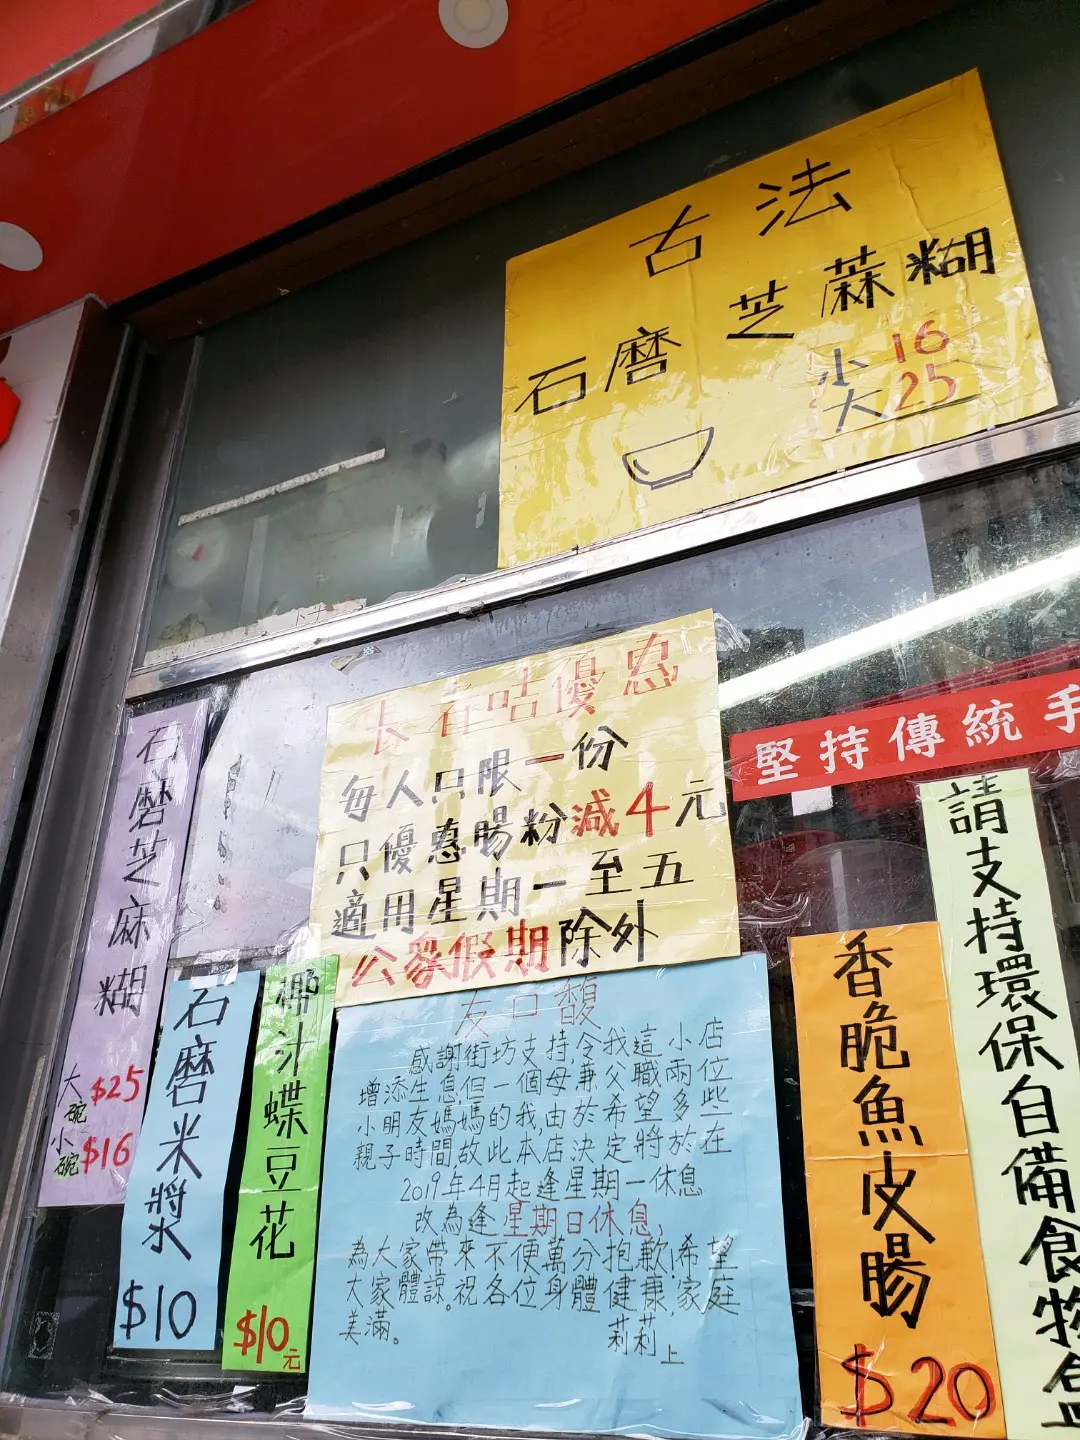 古法
石磨芝蔴糊
小16
大25
卡布咭優惠
每人只限一份
只優惠腸粉減4元
適用星期一至五
公眾假期除外
堅持傳統手
石磨芝麻糊
大碗$25
小碗$16
石磨米漿
$10
椰汁蝶豆花
$10元
友口馥
感謝街坊支持令我這小店
增添生息但一個母兼父職兩位
小朋友媽媽的我,由於希望多些
親子時間故此本店決定將於在
2019年4月起逢星期一休息
改為逢星期日休息,
為大家帶來不便萬分抱歉,希望
大家體諒。祝各位身體健康,家庭
美滿。
莉莉上
香脆魚皮腸
$20
請支持環保自備食物盒